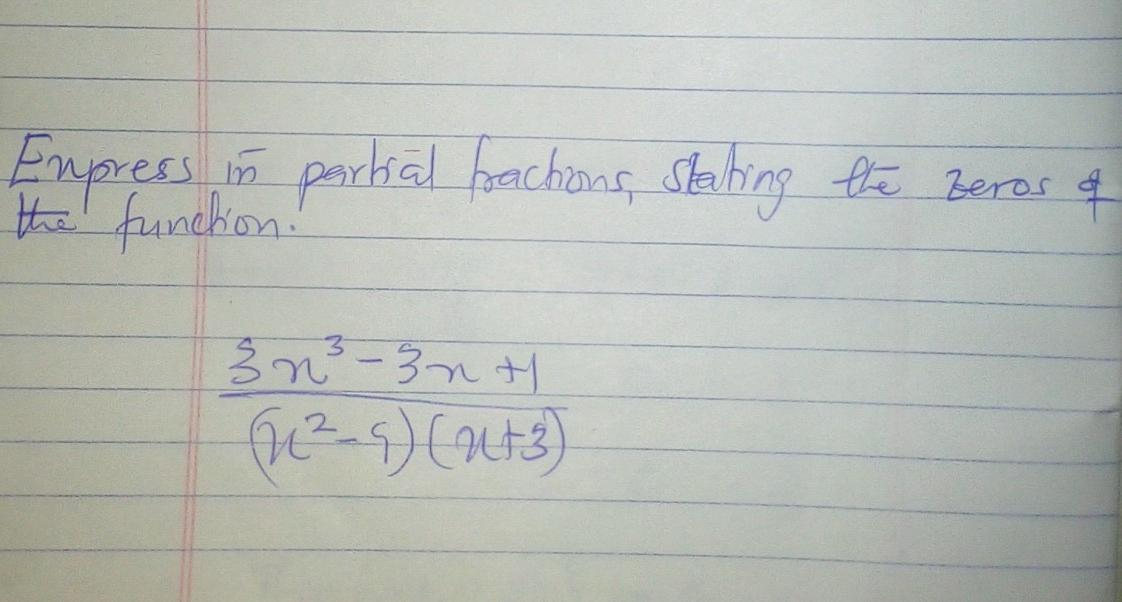 Express in partial fractions, stating the zeros of
the function.
3x³ - 3x + 1
(x² - 9)(x+3)